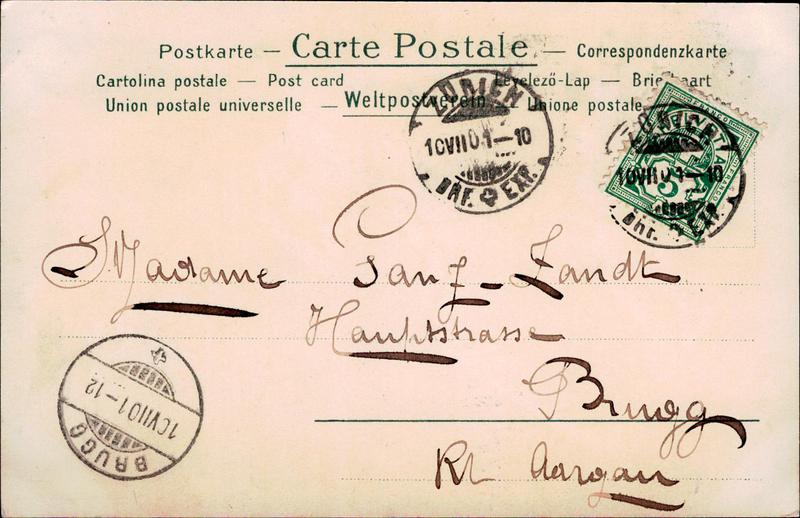 Postkarte — Carte Postale — Correspondenzkarte
Cartolina postale — Post card — Levelező-Lap — Briefkaart
Union postale universelle — Weltpostverein — Unione postale
ZÜRICH
10 VII 01 — 10
BHF. EXP.
ZÜRICH
10 VII 01 — 10
Bhf. EXP.
HELVETIA
FRANCO
5
Madame
Hauptstrasse
Brugg
Kt Aargau
10 VII 01 — 12
BRUGG